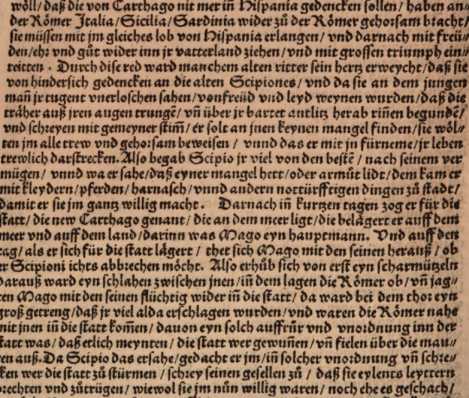 wöll/ daß die von Carthago nit mer in Hispania gedencken sollen/ haben an
der Römer Italia/ Sicilia/ Sardinia wider zů der Römer gehorsam bracht/
sie müssen mit jm gleiches lob von Hispania erlangen/ vnd darnach mit freü-
den/ehr vnd gůt wider inn jr vatterland ziehen/ vnd mit grossen triumph ein
reitten. Durch dise red ward manchem alten ritter sein hertz erweycht/ daß sie
von hindersich gedencken an die alten Scipiones/ vnd da sie an dem jungen
man jr tugent vnerloschen sahen/ von freüd vnd leyd weynen wurden/ daß die
träher auß jren augen trungē/ vñ über jr bartet antlitz herab riñen begundē/
vnd schreyen mit gemeyner stim̃/ er solt an jnen keynen mangel finden/ sie wöl-
ten jm alle trew vnd gehorsam beweisen/ vnnd das er mit jn fürneme/ jr leben
trewlich darstrecken. Also begab Scipio jr viel von den bestē/ nach seinem ver
mügen/ vnnd wa er sahe/ daß eyner mangel hett/ oder armůt lidt/ dem kam er
mit kleydern/ pferden/ harnasch/ vnnd andern notturfftigen dingen zů stadt/
damit er sie jm gantz willig macht. Darnach iñ kurtzen tagen zog er für die
statt/ die new Carthago genant/ die an dem meer ligt/ die belägert er auff dem
meer vnd auff dem land/ darinn was Mago eyn hauptmann. Vnd auff den
tag/ als er sich für die statt lägert/ thet sich Mago mit den seinen herauß/ ob
er Scipioni ichts abbrechen möcht. Also erhůb sich von erst eyn scharmützeln
darauß ward eyn schlahen zwischen jnen/ iñ dem lagen die Römer ob/ vñ jag-
ten Mago mit den seinen flüchtig wider iñ die statt/ da ward bei dem thor eyn
groß getreng/ daß jr viel alda erschlagen wurden/ vnd waren die Römer nahe
mit jnen iñ die statt kom̃en/ dauon eyn solch auffrůr vnd vnordnung inn der
statt was/ daß etlich meynten/ die statt wer gewuñen/ vñ fielen über die mau-
ren auß. Da Scipio das ersahe/ gedacht er jm/ iñ solcher vnordnung vñ schre-
cken wer die statt zů stürmen/ schrey seinen gesellen zů/ daß sie eylents leyttern
brechten vnd zůtrügen/ wiewol sie jm nůn willig waren/ noch ehe es geschach/